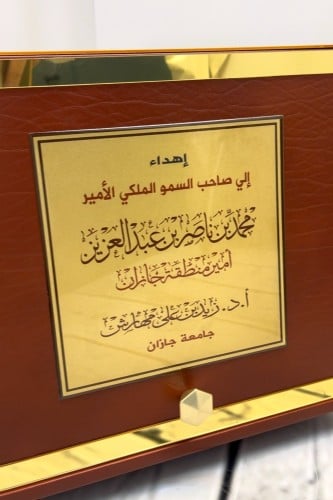 اهداء
إلي صاحب السمو الملكي الأمير
محمد بن ناصر بن عبد العزيز
أمير منطقة جازان
أ.د. زيد بن علي مهارش
جامعة جازان